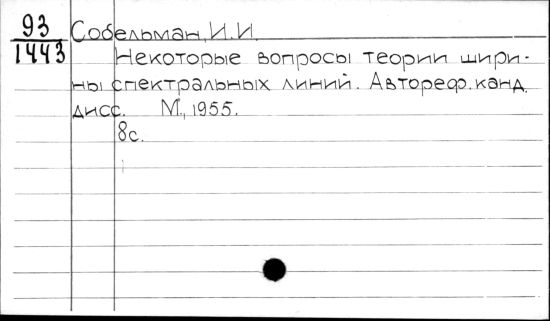 93
1443
Собельман, И.И.
Некоторые вопросы теории шири-
ны спектральных линий. Автореф. канд.
дисс. М., 1955.
8с.